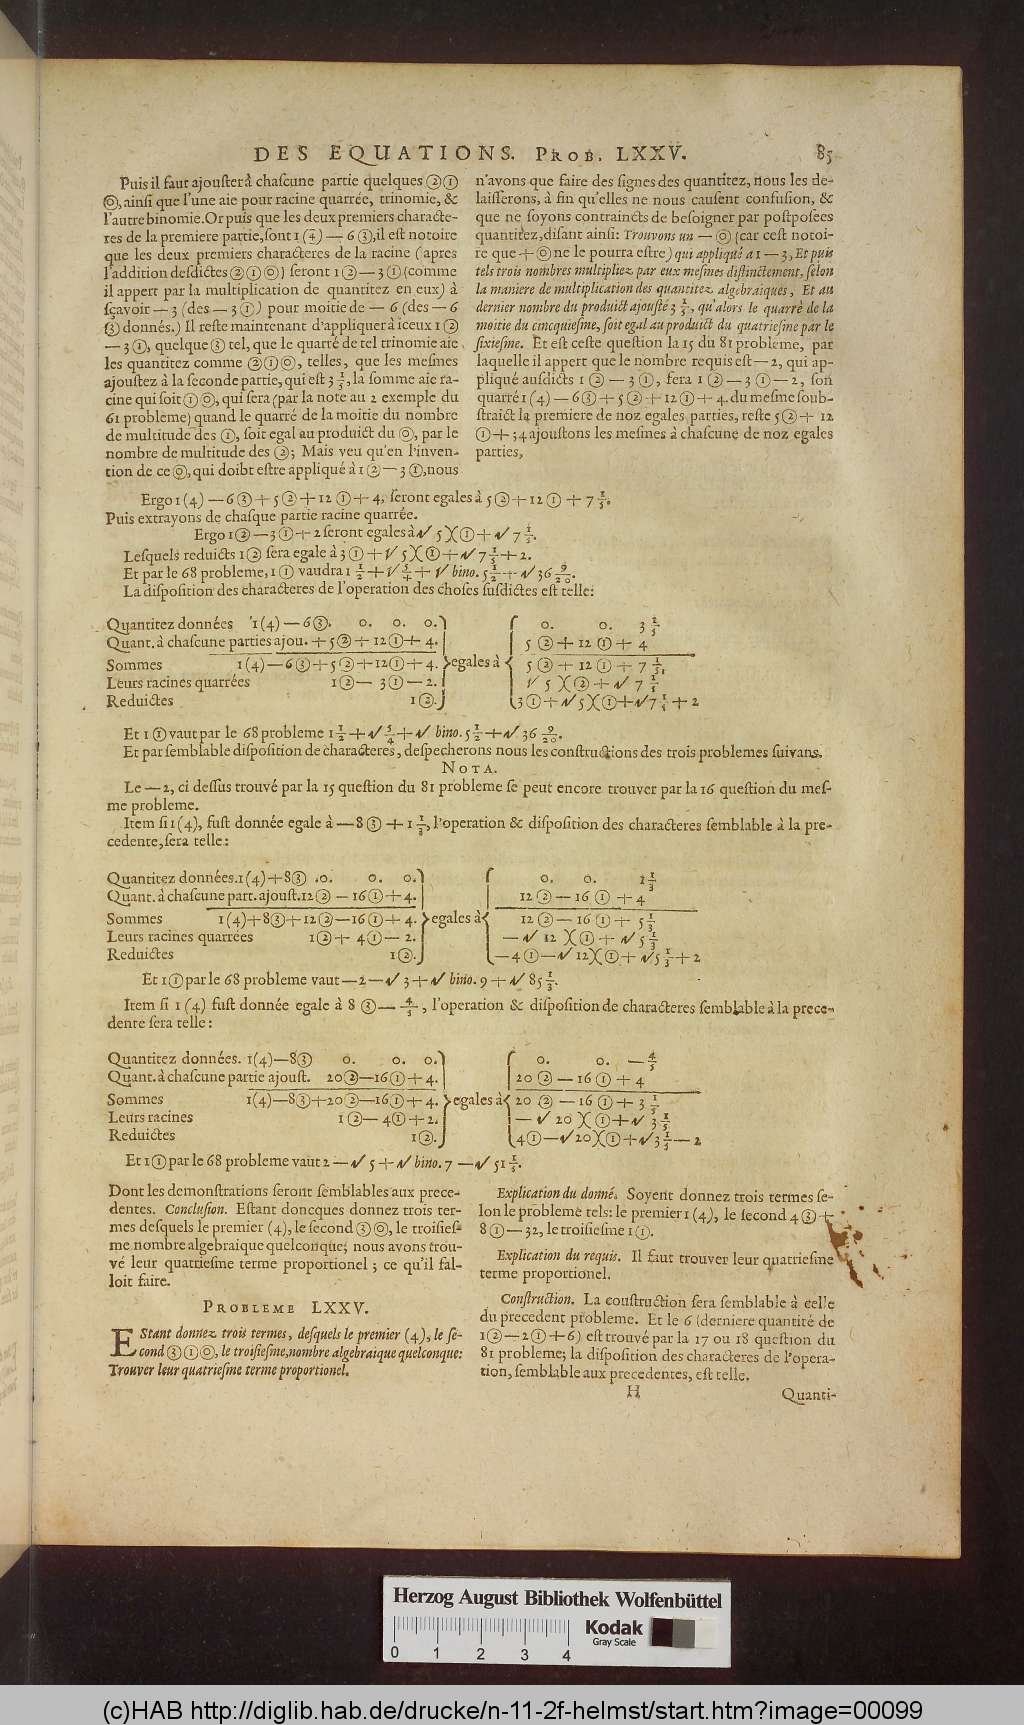 DES EQUATIONS. PROB. LXXV. 85
Puis il faut ajouſter à chaſcune partie quelques ② ①
⓪, ainſi que l'une aie pour racine quarrée, trinomie, &
l'autre binomie. Or puis que les deux premiers characte-
res de la premiere partie, ſont 1 (4) — 6 ③, il eſt notoire
que les deux premiers characteres de la racine (apres
l'addition deſdictes ② ① ⓪) ſeront 1 ② — 3 ① (comme
il appert par la multiplication de quantitez en eux) à
ſçavoir — 3 (des — 3 ①) pour moitie de — 6 (des — 6
③ donnés.) Il reſte maintenant d'appliquer à iceux 1 ②
— 3 ①, quelque ③ tel, que le quarré de tel trinomie aie
les quantitez comme ② ① ⓪, telles, que les meſmes
ajouſtez à la ſeconde partie, qui eſt 3 1/2, la ſomme aie ra-
cine qui ſoit ① ⓪, qui ſera (par la note au 2 exemple du
61 probleme) quand le quarré de la moitie du nombre
de multitude des ①, ſoit egal au produict du ⓪, par le
nombre de multitude des ②; Mais veu qu'en l'inven-
tion de ce ⓪, qui doibt eſtre appliqué à 1 ② — 3 ①, nous
n'avons que faire des ſignes des quantitez, nous les de-
laiſſerons, à fin qu'elles ne nous cauſent confuſion, &
que ne ſoyons contraincts de beſoigner par poſtpoſées
quantitez, diſant ainſi: Trouvons un — ⓪ (car ceſt notoi-
re que + ⓪ ne le pourra eſtre) qui appliqué a 1 — 3, Et puis
tels trois nombres multipliez par eux meſmes diſtinctement, ſelon
la maniere de multiplication des quantitez algebraiques, Et au
dernier nombre du produict ajouſté 3 1/5, qu'alors le quarré de la
moitie du cincquieſme, ſoit egal au produict du quatrieſme par le
ſixieſme. Et eſt ceſte queſtion la 15 du 81 probleme, par
laquelle il appert que le nombre requis eſt — 2, qui ap-
pliqué auſdicts 1 ② — 3 ①, ſera 1 ② — 3 ① — 2, ſon
quarré 1 (4) — 6 ③ + 5 ② + 12 ① + 4. du meſme ſoub-
ſtraict la premiere de noz egales parties, reſte 5 ② + 12
① + 4 ajouſtons les meſmes à chaſcune de noz egales
parties,
Ergo 1 (4) — 6 ③ + 5 ② + 12 ① + 4, ſeront egales à 5 ② + 12 ① + 7 1/5.
Puis extrayons de chaſque partie racine quarrée.
Ergo 1 ② — 3 ① + 2 ſeront egales à √ 5 )( ① + √ 7 1/5.
Leſquels reduicts 1 ② ſera egale à 3 ① + √ 5 )( ① + √ 7 1/5 + 2.
Et par le 68 probleme, 1 ① vaudra 1 1/2 + √ 5/4 + √ bino. 5 1/2 + √ 36 9/20.
La diſpoſition des characteres de l'operation des choſes ſuſdictes eſt telle:
Quantitez données 1 (4) — 6 ③. 0. 0. 0. 0. 0. 3 1/5
Quant. à chaſcune parties ajou. + 5 ② + 12 ① + 4. 5 ② + 12 ① + 4
Sommes 1 (4) — 6 ③ + 5 ② + 12 ① + 4. egales à 5 ② + 12 ① + 7 1/5.
Leurs racines quarrées 1 ② — 3 ① — 2. √ 5 )( ② + √ 7 1/5
Reduictes 1 ②. 3 ① + √ 5 )( ① + √ 7 1/5 + 2
Et 1 ① vaut par le 68 probleme 1 1/2 + √ 5/4 + √ bino. 5 1/2 + √ 36 9/20.
Et par ſemblable diſpoſition de characteres, deſpecherons nous les conſtructions des trois problemes ſuivans.
NOTA.
Le — 2, ci deſſus trouvé par la 15 queſtion du 81 probleme ſe peut encore trouver par la 16 queſtion du meſ-
me probleme.
Item ſi 1 (4), fuſt donnée egale à — 8 ③ + 1 1/3, l'operation & diſpoſition des characteres ſemblable à la pre-
cedente, ſera telle:
Quantitez données. 1 (4) + 8 ③ .0. 0. 0. 0. 0. 1 1/3
Quant. à chaſcune part. ajouſt. 12 ② — 16 ① + 4. 12 ② — 16 ① + 4
Sommes 1 (4) + 8 ③ + 12 ② — 16 ① + 4. egales à 12 ② — 16 ① + 5 1/3
Leurs racines quarrées 1 ② + 4 ① — 2. — √ 12 )( ① + √ 5 1/3
Reduictes 1 ②. — 4 ① — √ 12 )( ① + √ 5 1/3 + 2
Et 1 ① par le 68 probleme vaut — 2 — √ 3 + √ bino. 9 + √ 85 1/3.
Item ſi 1 (4) fuſt donnée egale à 8 ③ — 4/5, l'operation & diſpoſition de characteres ſemblable à la prece-
dente ſera telle:
Quantitez données. 1 (4) — 8 ③ 0. 0. 0. 0. 0. — 4/5
Quant. à chaſcune partie ajouſt. 20 ② — 16 ① + 4. 20 ② — 16 ① + 4
Sommes 1 (4) — 8 ③ + 20 ② — 16 ① + 4. egales à 20 ② — 16 ① + 3 1/5
Leurs racines 1 ② — 4 ① + 2. — √ 20 )( ① + √ 3 1/5
Reduictes 1 ②. 4 ① — √ 20 )( ① + √ 3 1/5 — 2
Et 1 ① par le 68 probleme vaut 2 — √ 5 + √ bino. 7 — √ 51 1/5.
Dont les demonſtrations ſeront ſemblables aux prece-
dentes. Concluſion. Eſtant doncques donnez trois ter-
mes deſquels le premier (4), le ſecond ③ ⓪, le troiſieſ-
me nombre algebraique quelconque; nous avons trou-
vé leur quatrieſme terme proportionel; ce qu'il fal-
loit faire.
PROBLEME LXXV.
EStant donnez trois termes, deſquels le premier (4), le ſe-
cond ③ ① ⓪, le troiſieſme, nombre algebraique quelconque:
Trouver leur quatrieſme terme proportionel.
Explication du donné. Soyent donnez trois termes ſe-
lon le probleme tels: le premier 1 (4), le ſecond 4 ③ +
8 ① — 32, le troiſieſme 1 ①.
Explication du requis. Il faut trouver leur quatrieſme
terme proportionel.
Conſtruction. La conſtruction ſera ſemblable à celle
du precedent probleme. Et le 6 (derniere quantité de
1 ② — 2 ① + 6) eſt trouvé par la 17 ou 18 queſtion du
81 probleme; la diſpoſition des characteres de l'opera-
tion, ſemblable aux precedentes, eſt telle.
H Quanti-
Herzog August Bibliothek Wolfenbüttel
Kodak
Gray Scale
0 1 2 3 4
(c)HAB http://diglib.hab.de/drucke/n-11-2f-helmst/start.htm?image=00099